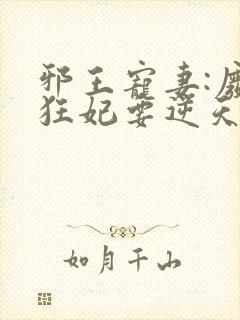 邪王寵妻:廢
狂妃要逆天
如月千山